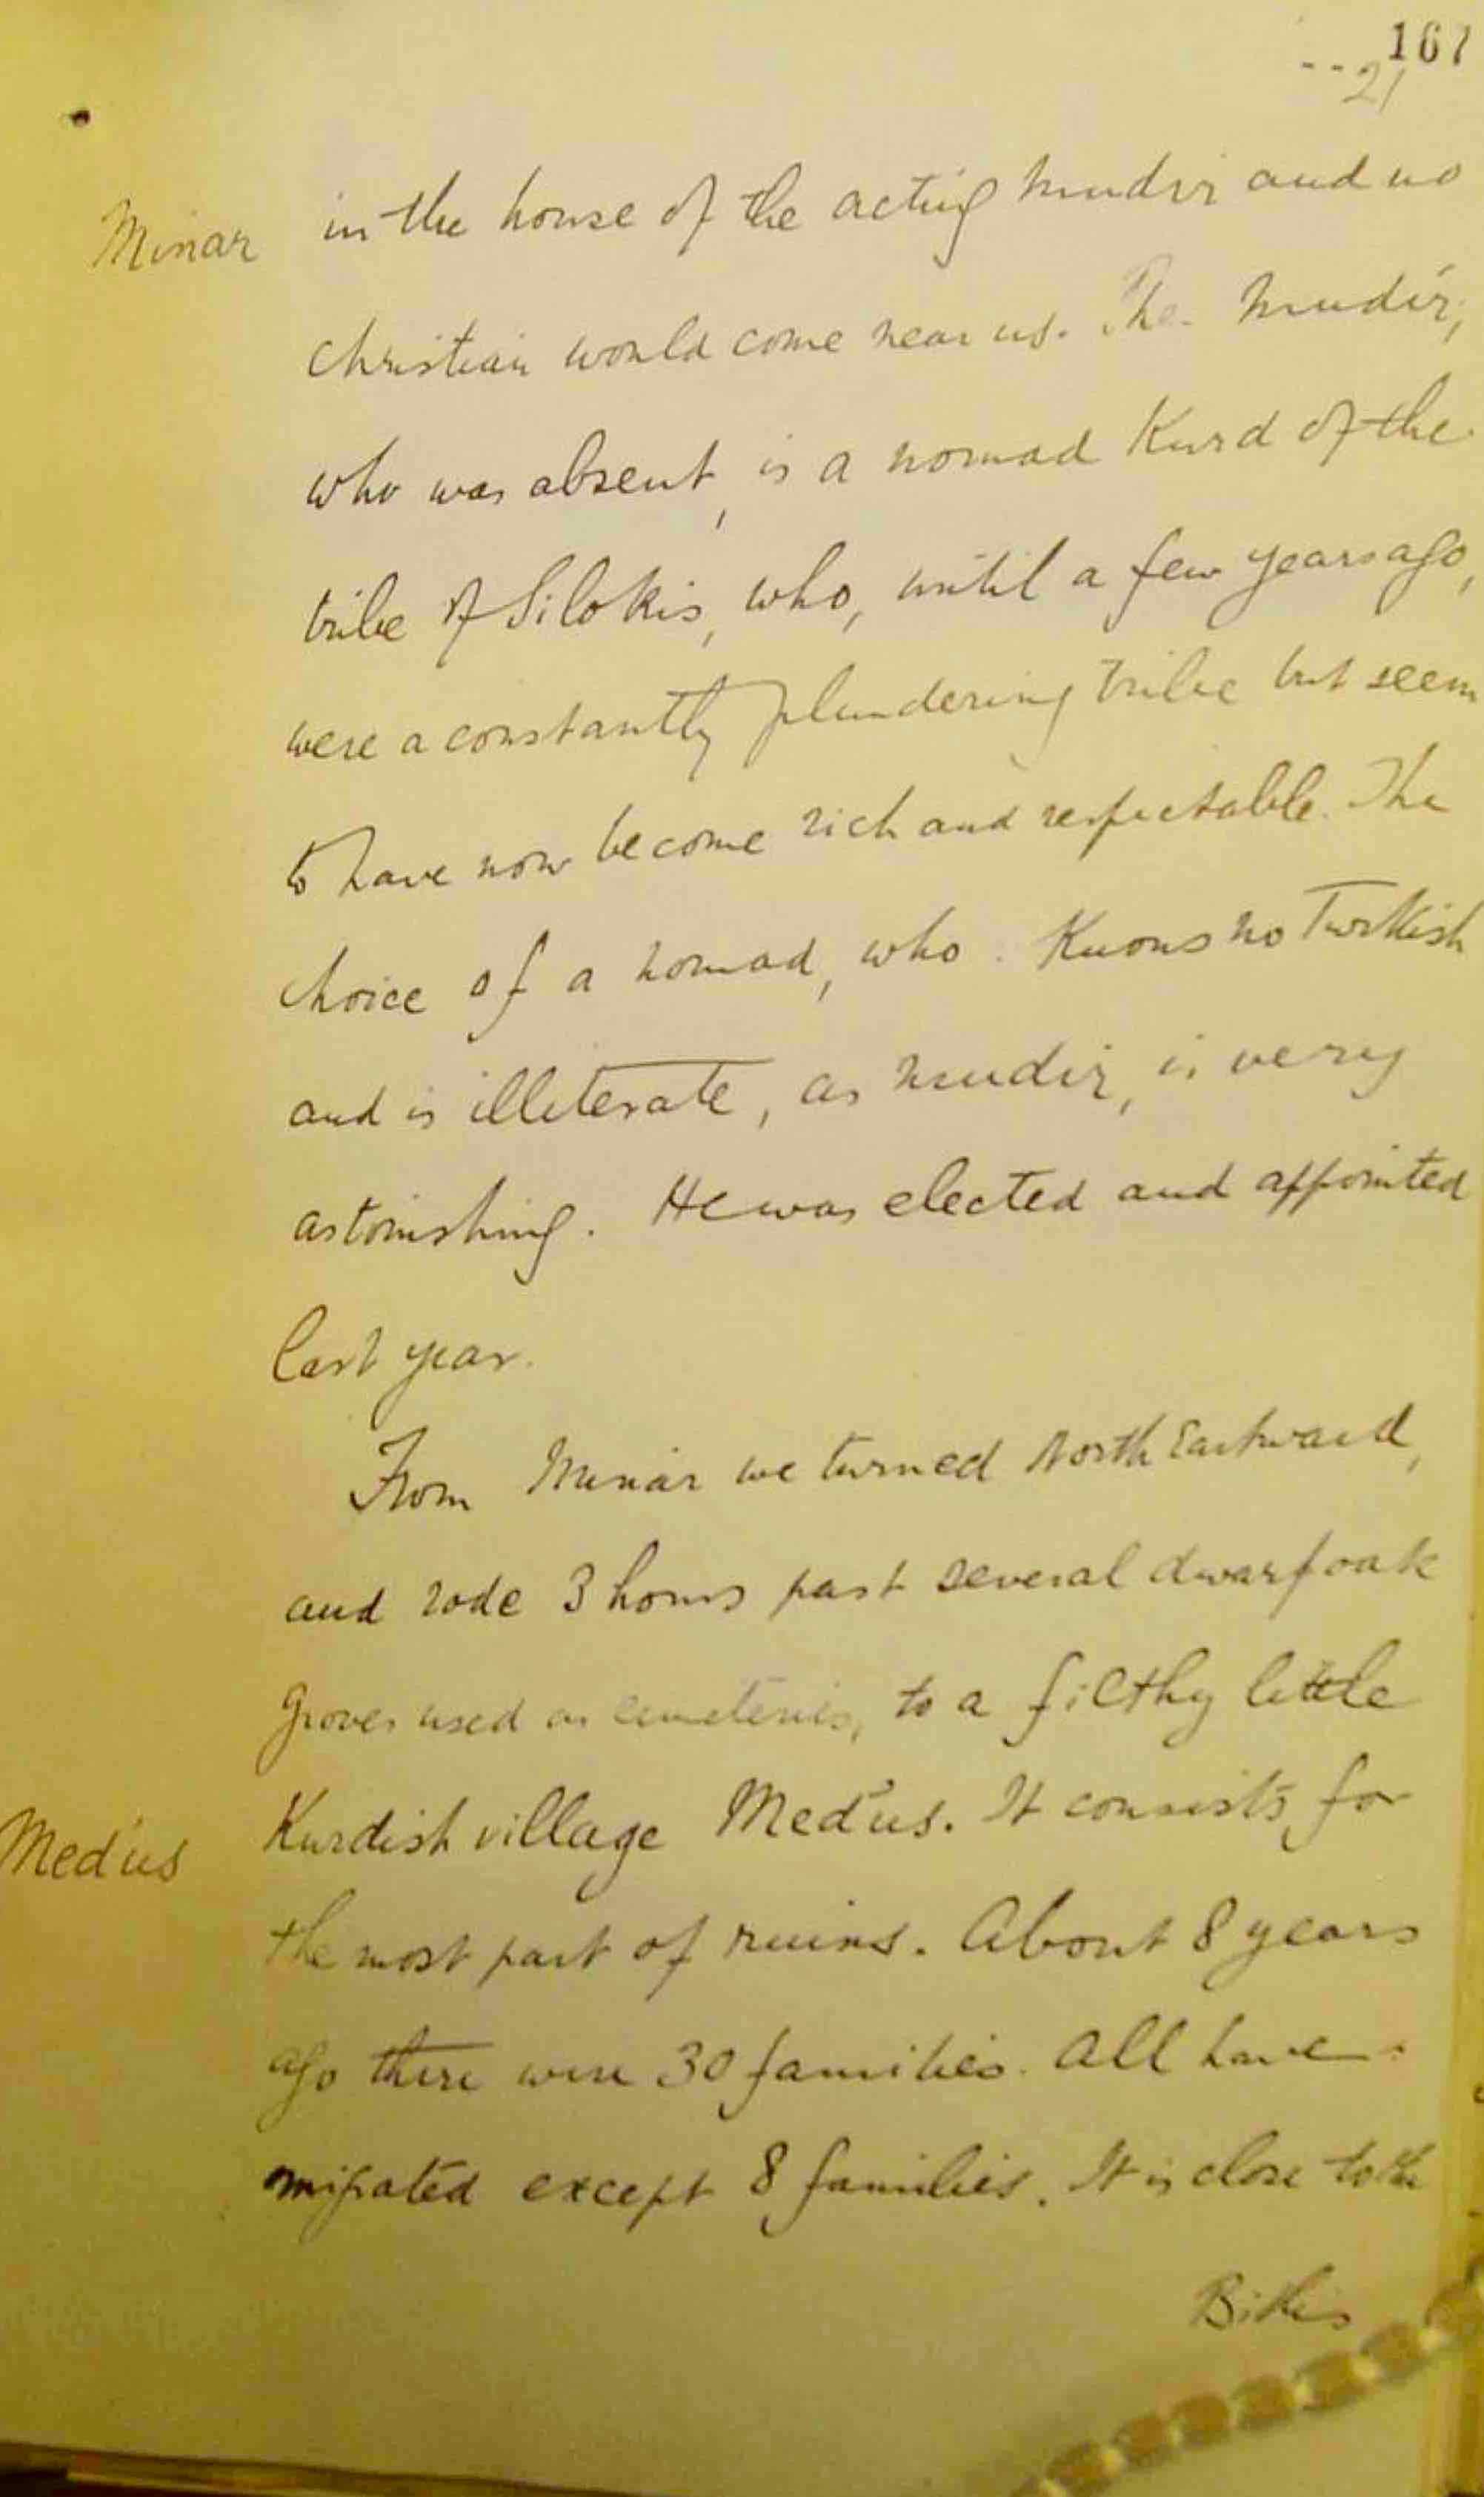 167
21
Minar
in the house of the acting mudir and no
Christian would come near us. The mudir,
who was absent, is a nomad Kurd of the
tribe of Silokis, who, until a few years ago,
were a constantly plundering tribe but seem
to have now become rich and respectable. The
choice of a nomad, who knows no Turkish
and is illiterate, as mudir, is very
astonishing. He was elected and appointed
last year.
From Minar we turned North Eastward,
and rode 3 hours past several dwarf oak
groves used as cemeteries, to a filthy little
Medus
Kurdish village Medus. It consists for
the most part of ruins. About 8 years
ago there were 30 families. All have
migrated except 8 families. It is close to the
Bitlis